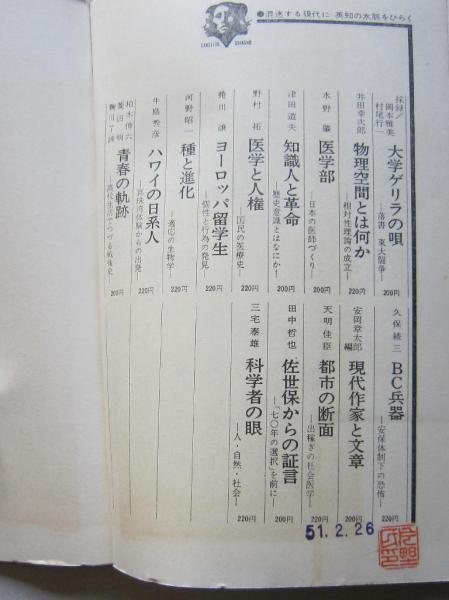 ●混迷する現代に 英知の水脈をひらく
SANSEIDO SHINSHO
採録/岡本雅美 村尾行一
大学ゲリラの唄
―落書 東大闘争―
200円
井田幸次郎
物理空間とは何か
―相対性理論の成立―
220円
水野 肇
医学部
―日本の医師づくり―
200円
津田道夫
知識人と革命
―歴史意識とはなにか!
200円
野村 拓
医学と人権
―国民の医療史―
220円
勝川 譲
ヨーロッパ留学生
―個性と行為の発見―
220円
河野昭一
種と進化
―適応の生物学―
220円
牛島秀彦
ハワイの日系人
―真珠湾体験からの出発―
220円
柏木伸六
菱田 明
鞠川了諦
青春の軌跡
―高校生活でつづる戦後史―
200円
久保綾三
BC兵器
―安保体制下の恐怖―
220円
安岡章太郎 編
現代作家と文章
220円
天明佳臣
都市の断面
―出稼ぎの社会医学―
200円
田中哲也
佐世保からの証言
―「七〇年の選択」を前に―
200円
三宅泰雄
科学者の眼
―人・自然・社会―
220円
51.2.26